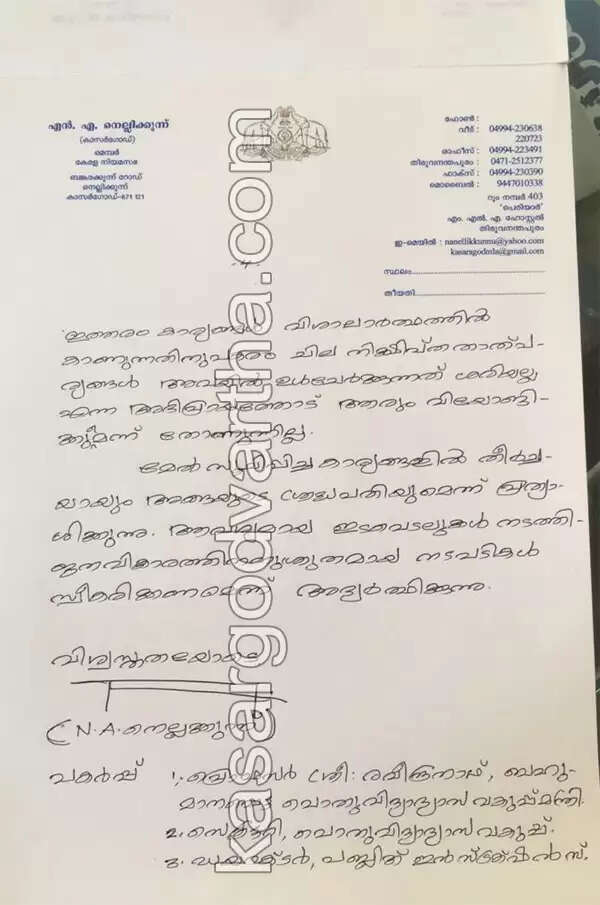 എൻ. എ. നെല്ലിക്കുന്ന്
(കാസർഗോഡ്)
മെമ്പർ
കേരള നിയമസഭ
ബങ്കരക്കുന്ന് റോഡ്
നെല്ലിക്കുന്ന്
കാസർഗോഡ്-671 121
ഫോൺ :
വീട് : 04994-230638
220723
ഓഫീസ് : 04994-223491
തിരുവനന്തപുരം : 0471-2512377
ഫാക്സ് : 04994-230390
മൊബൈൽ : 9447010338
റൂം നമ്പർ 403
'പെരിയാർ'
എം. എൽ. എ. ഹോസ്റ്റൽ
തിരുവനന്തപുരം
ഇ-മെയിൽ : nanellikkunnu@yahoo.com
kasaragodmla@gmail.com
സ്ഥലം
തീയതി
ഇത്തരം കാര്യങ്ങൾ വിശാലാർത്ഥത്തിൽ
കാണുന്നതിനുപകരം ചില നിക്ഷിപ്ത താത്പ-
ര്യങ്ങൾ അവയിൽ ഉൾചേർക്കുന്നത് ശരിയല്ല
എന്ന അഭിപ്രായത്തോട് ആരും വിയോജി-
ക്കുമെന്ന് തോന്നുന്നില്ല.
മേൽ സൂചിപ്പിച്ച കാര്യങ്ങളിൽ തീർച്ച-
യായും അങ്ങയുടെ ശ്രദ്ധപതിയുമെന്ന് പ്രത്യാ-
ശിക്കുന്നു. ആവശ്യമായ ഇടപെടലുകൾ നടത്തി
ജനവികാരത്തിനനുസൃതമായ നടപടികൾ
സ്വീകരിക്കണമെന്ന് അഭ്യർത്ഥിക്കുന്നു.
വിശ്വസ്തതയോടെ
(N.A. നെല്ലിക്കുന്ന്)
പകർപ്പ് 1. പ്രൊഫസർ ശ്രീ: രവീന്ദ്രനാഥ്, ബഹു-
മാനപ്പെട്ട പൊതുവിദ്യാഭ്യാസ വകുപ്പ് മന്ത്രി.
2. സെക്രട്ടറി, പൊതുവിദ്യാഭ്യാസ വകുപ്പ്.
3. ഡയറക്ടർ, പബ്ലിക് ഇൻസ്ട്രക്ഷൻസ്.
kasargodvartha.com